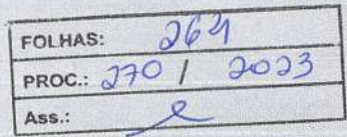 FOLHAS: 264
PROC.: 270 / 2023
Ass.: